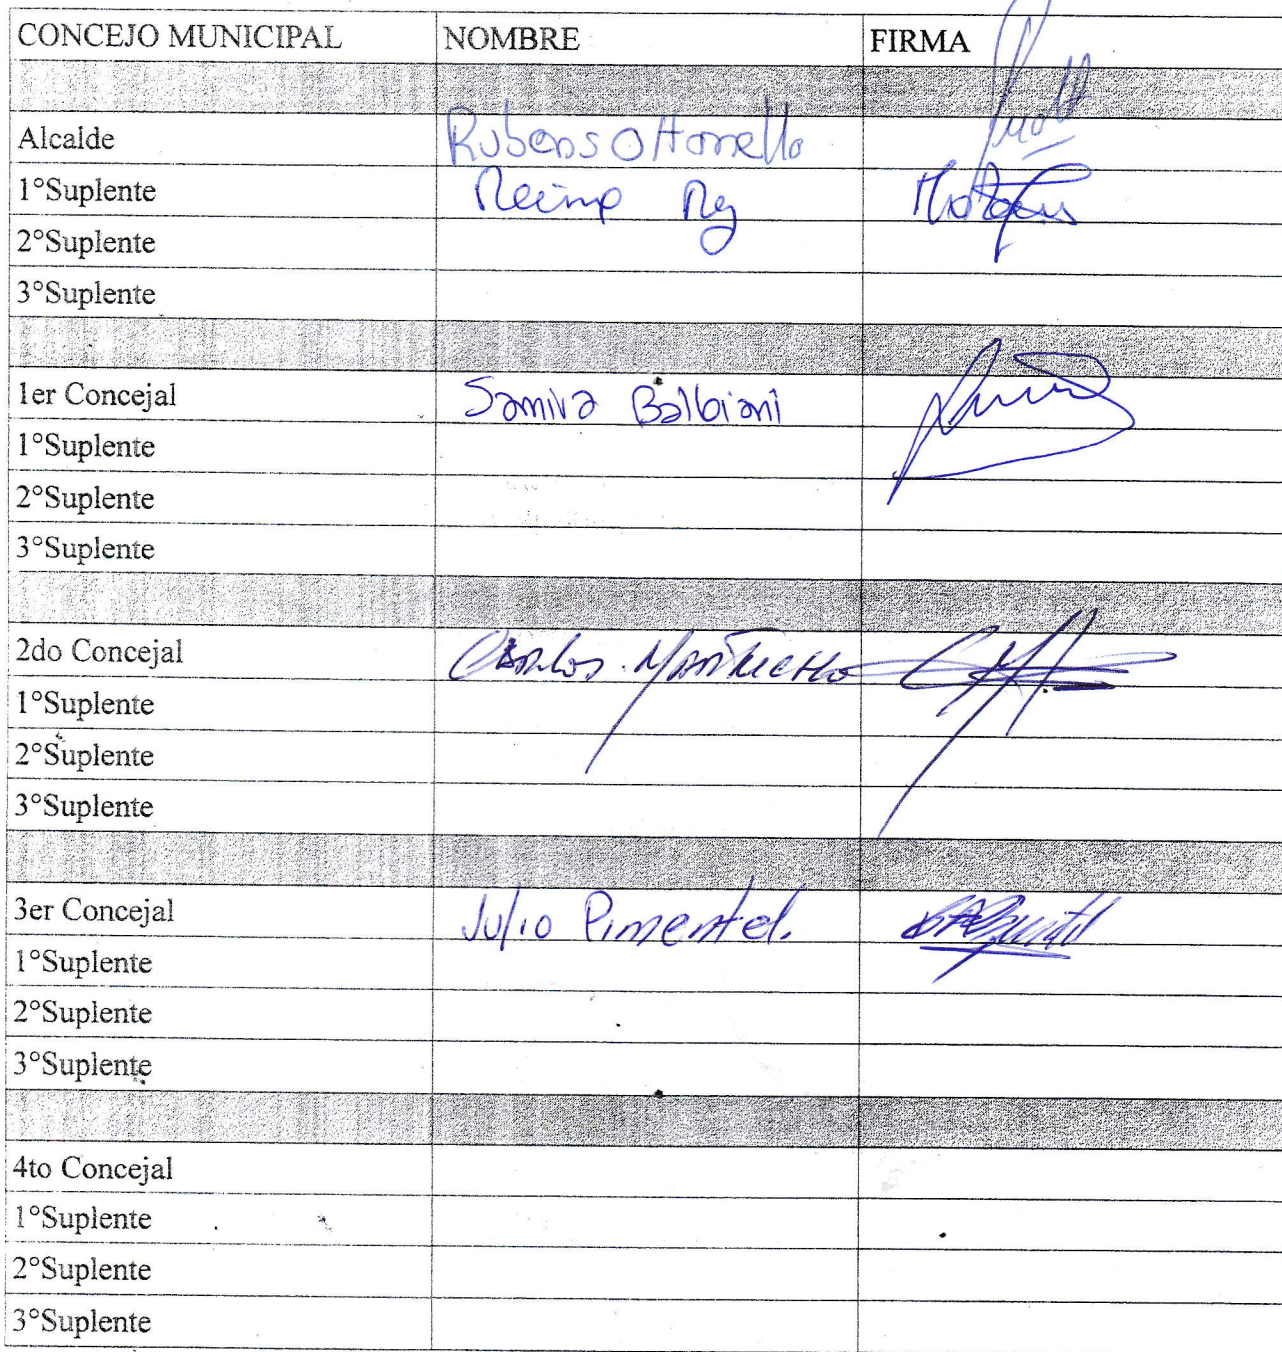 CONCEJO MUNICIPAL NOMBRE FIRMA
Alcalde Rubens Ottonello
1°Suplente
2°Suplente
3°Suplente
1er Concejal Samira Balbiani
1°Suplente
2°Suplente
3°Suplente
2do Concejal Carlos
1°Suplente
2°Suplente
3°Suplente
3er Concejal Julio Pimentel.
1°Suplente
2°Suplente
3°Suplente
4to Concejal
1°Suplente
2°Suplente
3°Suplente